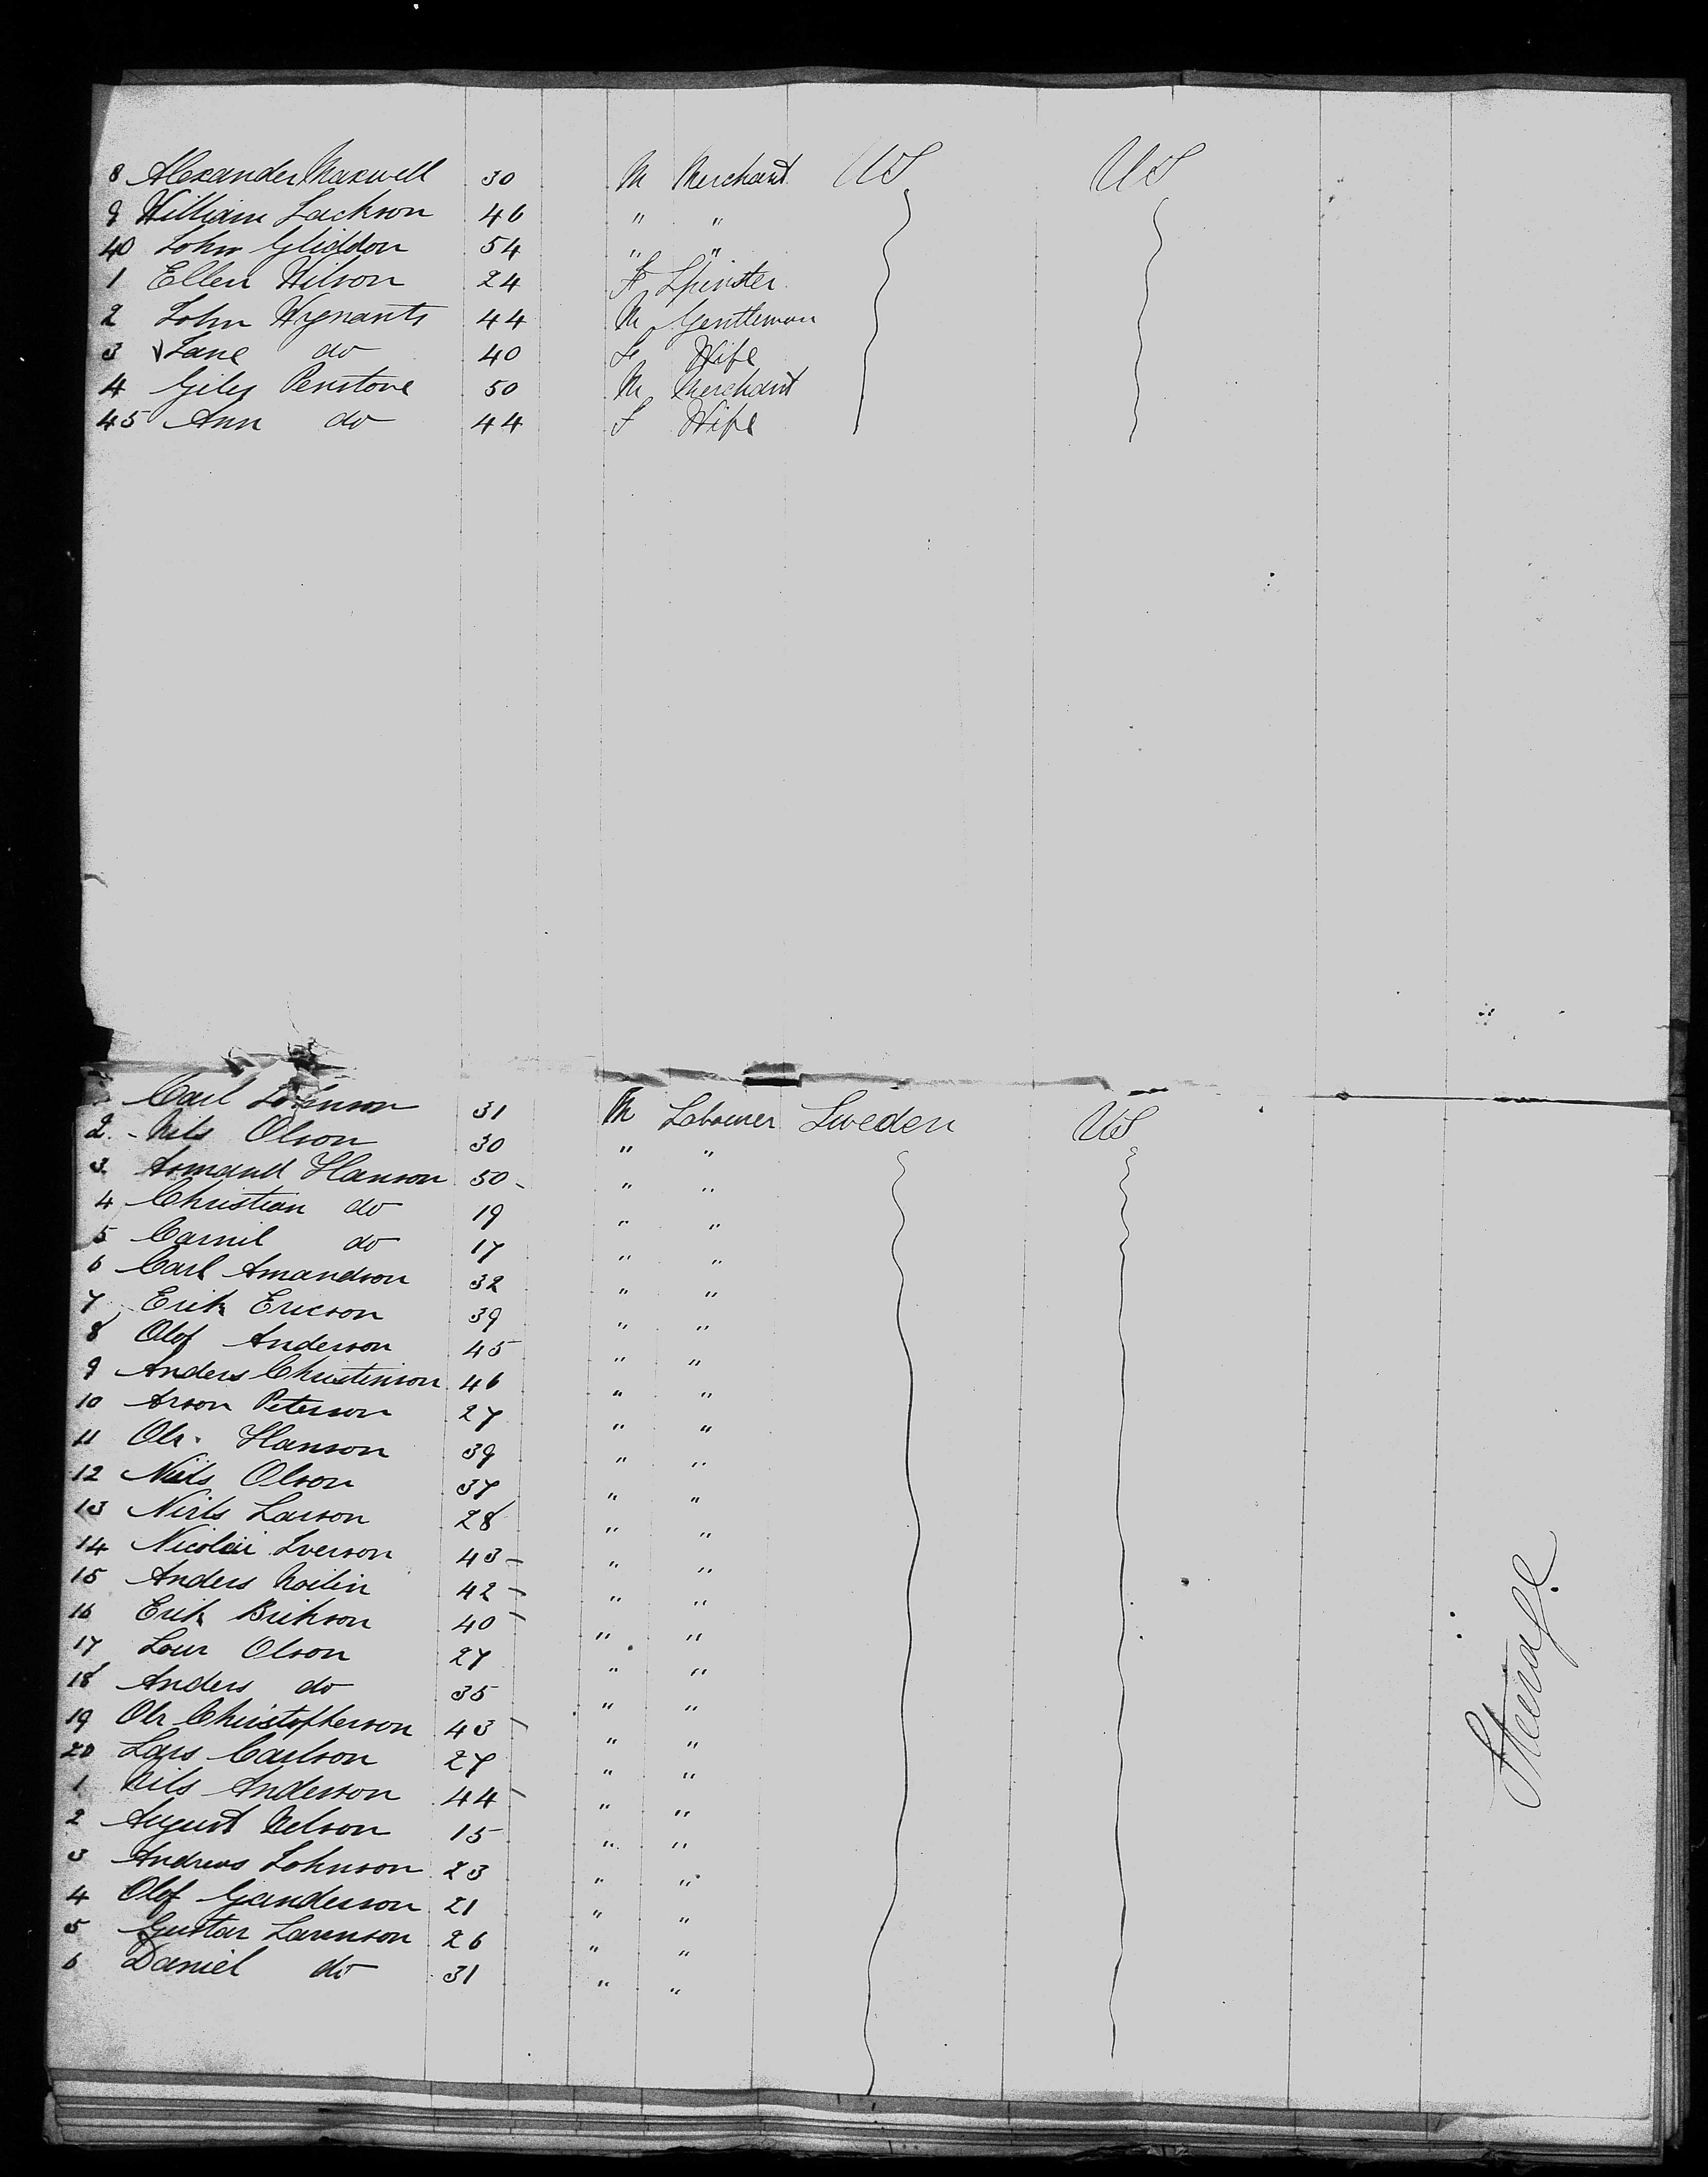 8 Alexander Maxwell 30 M Merchant US US
9 William Jackson 46 " "
40 John Gliddon 54 " "
1 Ellen Wilson 24 F Spinster
2 John Wynants 44 M Gentleman
3 Jane do 40 F Wife
4 Giles Penstone 50 M Merchant
45 Ann do 44 F Wife
Carl Johnson 31 M Labourer Sweden US
2 Nils Olson 30 " "
3 Armand Hanson 50 " "
4 Christian do 19 " "
5 Carnil do 17 " "
6 Carl Amandson 32 " "
7 Erik Ericson 39 " "
8 Olof Anderson 45 " "
9 Anders Christinson 46 " "
10 Aron Peterson 27 " "
11 Ole Hanson 39 " "
12 Niels Olson 37 " "
13 Niels Larson 28 " "
14 Nicolai Iverson 43 " "
15 Anders 42 " "
16 Erik Erikson 40 " "
17 Olson 27 " "
18 Anders do 35 " "
19 Ole Christopherson 43 " "
20 Lars Carlson 27 " "
1 Nils Anderson 44 " "
2 August Nelson 15 " "
3 Andrews Johnson 23 " "
4 Olof Ganderson 21 " "
5 Gustav Larenson 26 " "
6 Daniel do 31 " "
Steerage